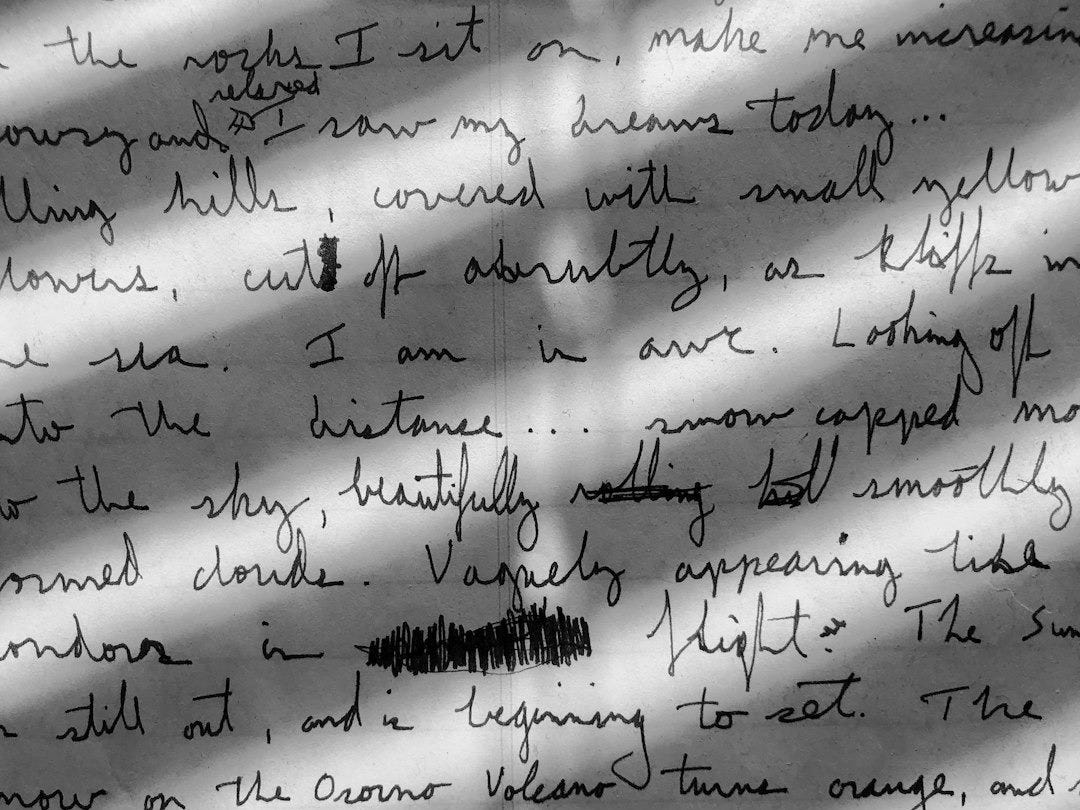 the rocks I sit on, make me increasin
relaxed
owsy and I saw my dreams today...
lling hills, covered with small yellow
lowers, cut off abrubtly, as kliffs in
he sea. I am in awe. Looking off
nto the distance... snow capped mo
to the sky, beautifully rolling smoothly
ormed clouds. Vaguely appearing like
ondors in flight. The Sun
is still out, and is beginning to set. The
now on the Osorno Volcano turns orange, and